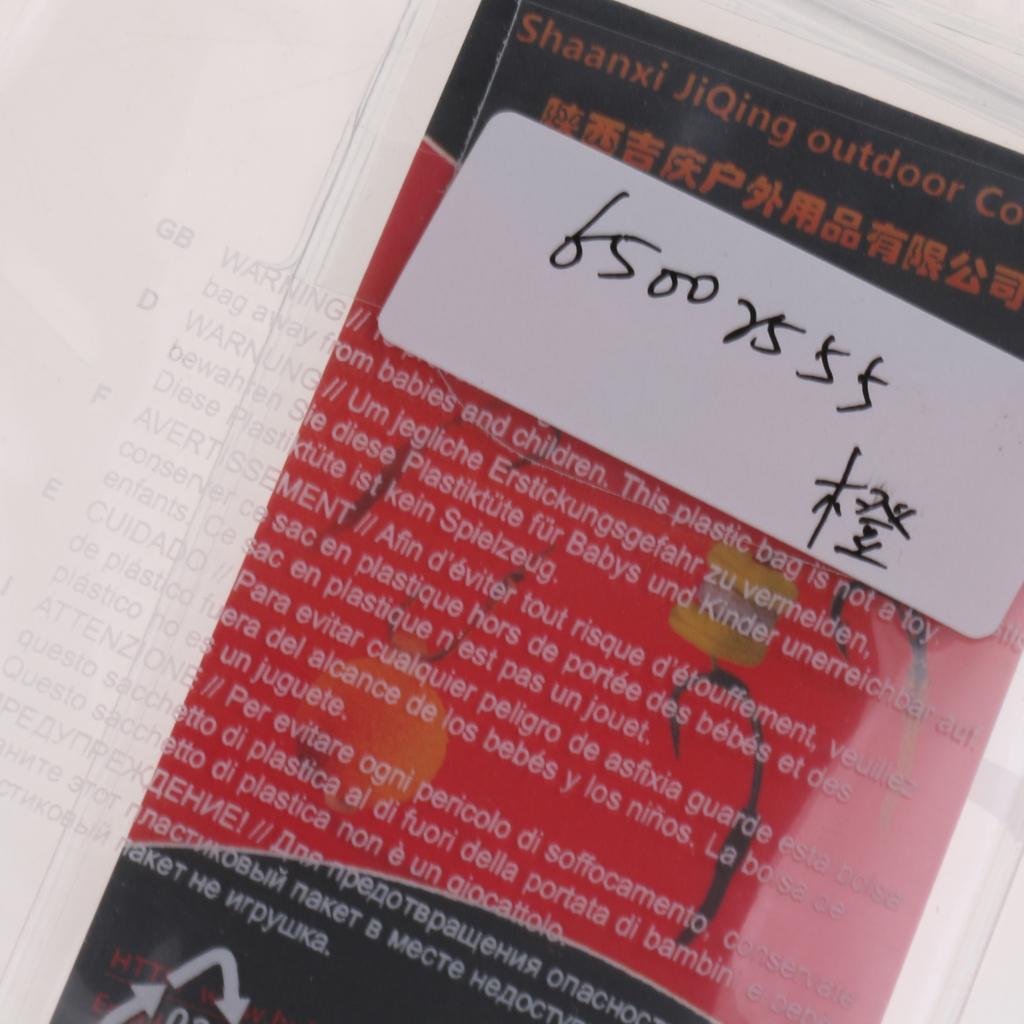 Shaanxi JiQing outdoor Co
陕西吉庆户外用品有限公司
65002555
橙
GB WARNING //
bag away from babies and children. This plastic bag is not a toy.
D WARNUNG // Um jegliche Erstickungsgefahr zu vermeiden,
bewahren Sie diese Plastiktüte für Babys und Kinder unerreichbar auf.
Diese Plastiktüte ist kein Spielzeug.
F AVERTISSEMENT // Afin d'éviter tout risque d'étouffement, veuillez
conserver ce sac en plastique hors de portée des bébés et des
enfants. Ce sac en plastique n'est pas un jouet.
E CUIDADO // Para evitar cualquier peligro de asfixia guarde esta bolsa
de plástico fuera del alcance de los bebés y los niños. La bolsa de
plástico no es un juguete.
I ATTENZIONE // Per evitare ogni pericolo di soffocamento, conservate
questo sacchetto di plastica al di fuori della portata di bambini e bebè.
Questo sacchetto di plastica non è un giocattolo.
ПРЕДУПРЕЖДЕНИЕ! // Для предотвращения опасност
аните этот пластиковый пакет в месте недоступ
стиковый пакет не игрушка.